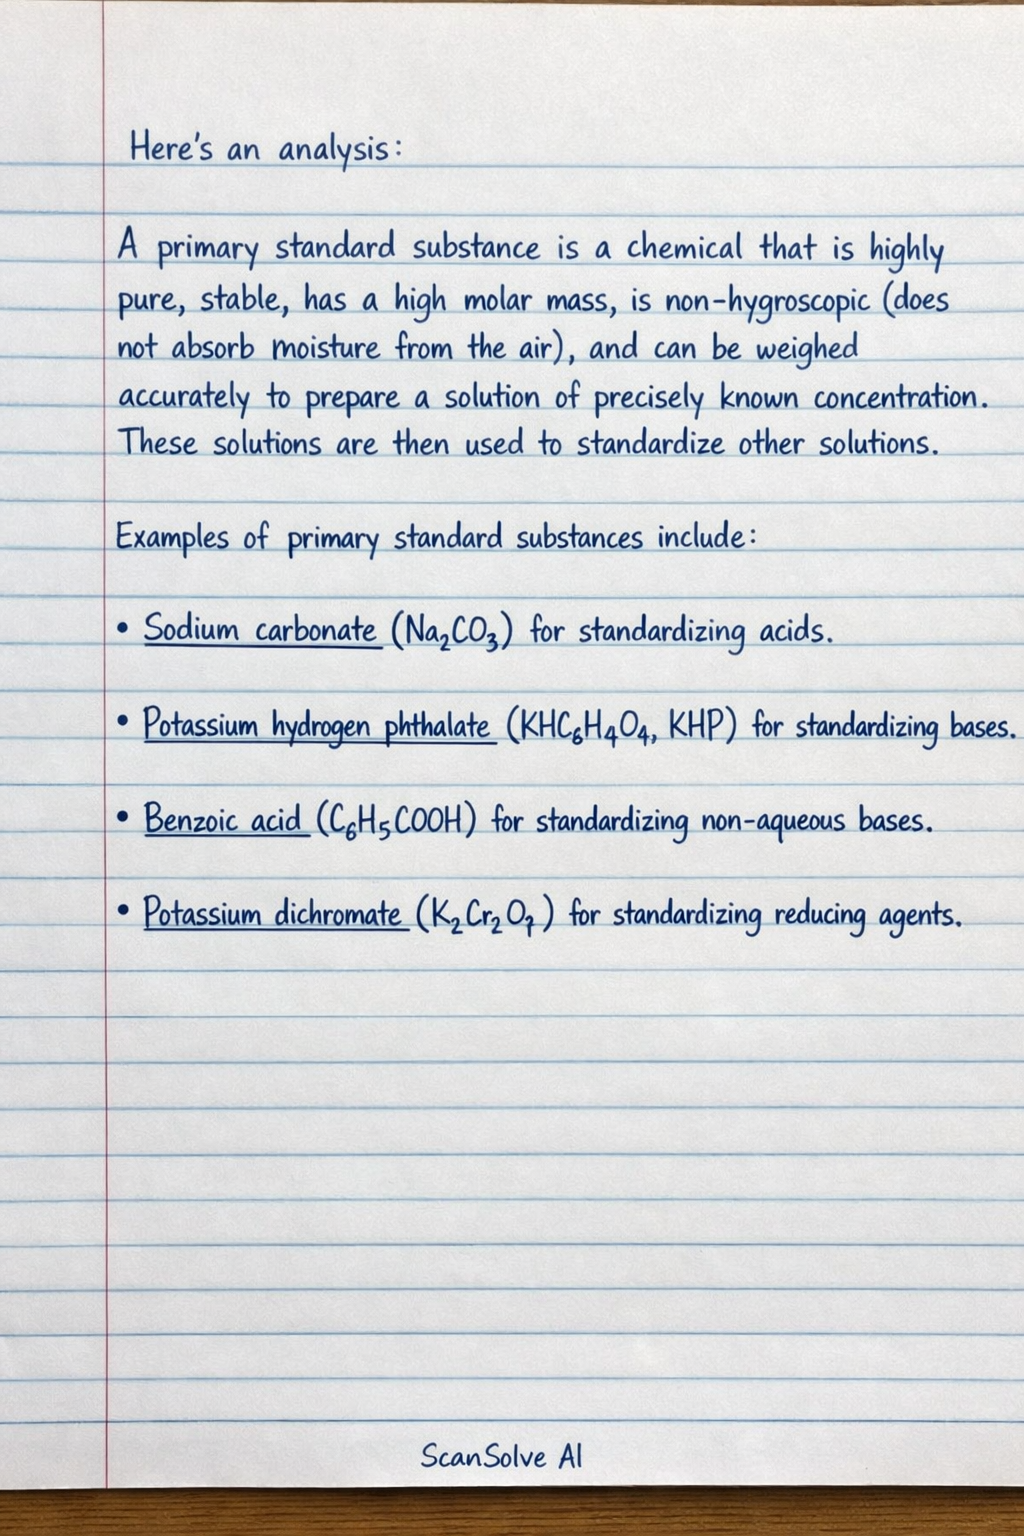 Here's an analysis:
A primary standard substance is a chemical that is highly
pure, stable, has a high molar mass, is non-hygroscopic (does
not absorb moisture from the air), and can be weighed
accurately to prepare a solution of precisely known concentration.
These solutions are then used to standardize other solutions.
Examples of primary standard substances include:
• Sodium carbonate (Na₂CO₃) for standardizing acids.
• Potassium hydrogen phthalate (KHC₆H₄O₄, KHP) for standardizing bases.
• Benzoic acid (C₆H₅COOH) for standardizing non-aqueous bases.
• Potassium dichromate (K₂Cr₂O₇) for standardizing reducing agents.
ScanSolve AI